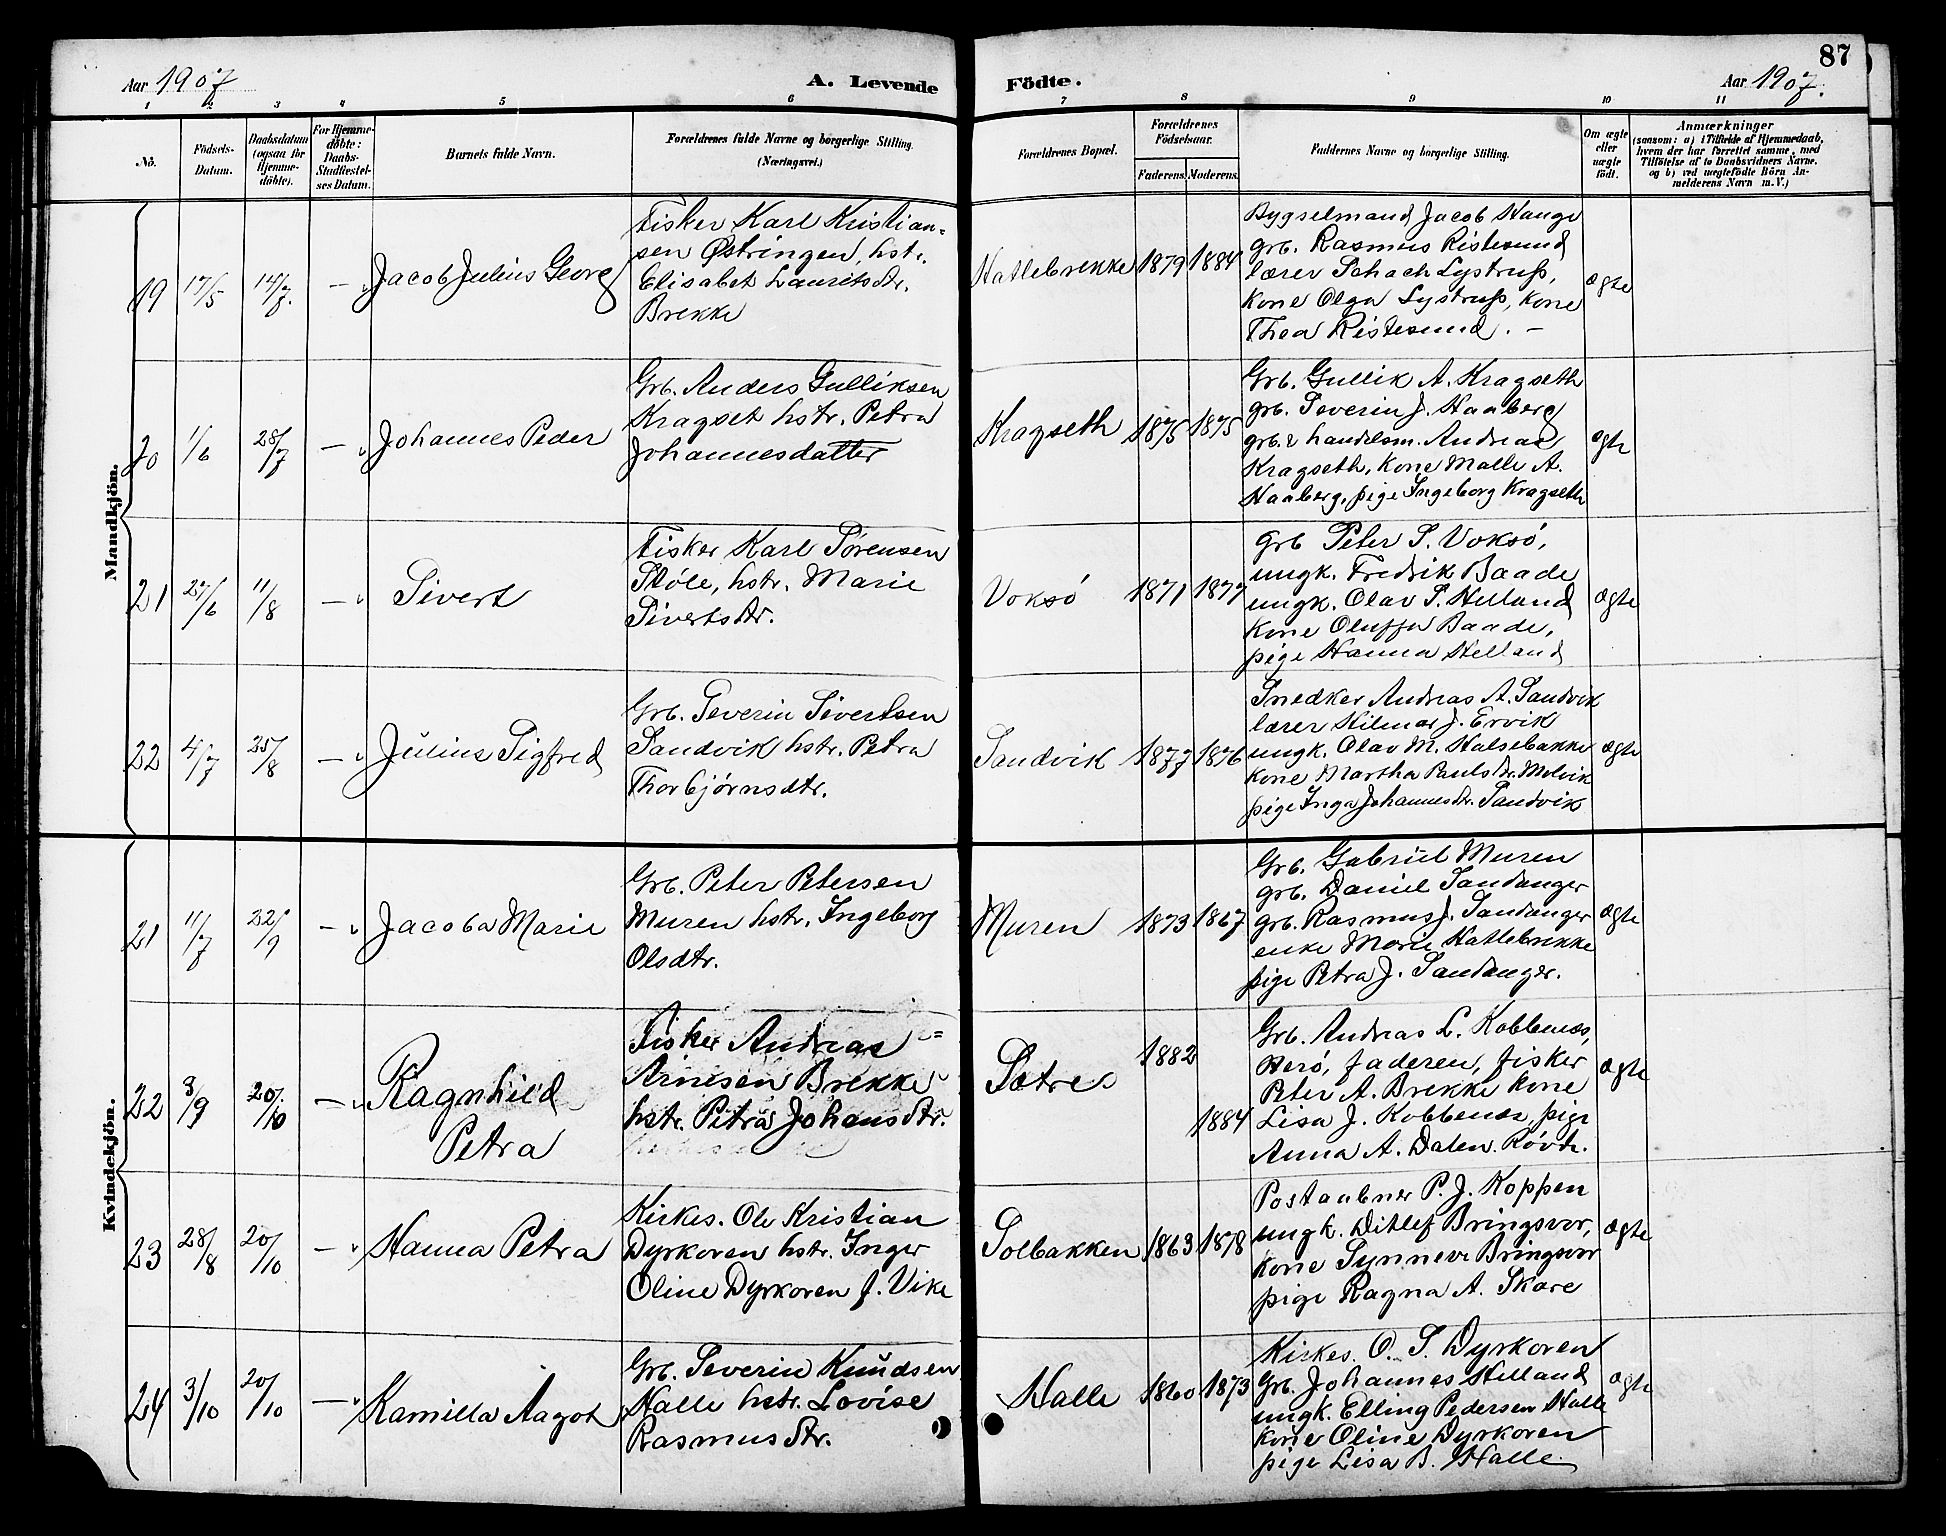 87
Aar 1907
A. Levende
Födte.
Aar 1907.
1 2 3 4 5 6 7 8 9 10 11
No.
Födsels-
Datum.
Daabsdatum
(ogsaa for
Hjemme-
döbte).
For Hjemme-
döbte:
Daabs-
Stadfæstel-
ses Datum.
Barnets fulde Navn.
Forældrenes fulde Navne og borgerlige Stilling.
(Næringsvei.)
Forældrenes Bopæl.
Forældrenes
Födselsaar.
Faderens. Moderens.
Faddernes Navne og borgerlige Stilling.
Om ægte
eller
uægte
födt.
Anmærkninger
(saasom: a) i Tilfælde af Hjemmedaab,
hvem der har forrettet samme, med
Tilföielse af to Daabsvidners Navne,
og b) ved uægtefödte Börn An-
melderens Navn m. V.)
Mandkjön.
19 17/5 14/7. — Jacob Julius Georg
Fisker Karl Kristian-
sen Østringen, hstr.
Elisabet Lauritsdtr.
Brekke
Hatlebrekke 1879 1884
Bygselmand Jacob Hauge
grb. Rasmus Ristesund
lærer Schach Lystrup,
kone Olga Lystrup, kone
Thea Ristesund. —
ægte
20 1/6 28/7 — Johannes Peder
Grb. Anders Gulliksen
Kragset hstr. Petra
Johannesdatter
Kragseth 1875 1875
Grb. Gullik A. Kragseth
grb. Severin J. Haaberg
grb. & handelsm. Andreas
Kragseth, kone Malle A.
Haaberg, pige Ingeborg Kragseth
ægte
21 27/6 11/8 — Sivert
Fisker Karl Sørensen
Støle, hstr. Marie
Sivertsdtr.
Voksø 1871 1877
Grb Peter S. Voksø,
ungk. Fredrik Baade
ungk. Olav S. Helland
kone Oluffa Baade,
pige Hanna Helland
ægte
22 4/7 25/8 — Julius Sigfred
Grb. Severin Sivertsen
Sandvik hstr. Petra
Thorbjørnsdtr.
Sandvik 1877 1876
Snedker Andreas A. Sandvik
lærer Hilmar J. Ervik
ungk. Olav M. Halsebakke
kone Martha Paulsdtr. Melvik
pige Inga Johannesdtr. Sandvik
ægte
Kvindekjön.
21 11/7 22/9 — Jacoba Marie
Grb. Peter Petersen
Muren hstr. Ingeborg
Olsdtr.
Muren 1873 1867
Grb. Gabriel Muren
grb. Daniel Sandanger
grb. Rasmus J. Sandanger
enke Marie Hatlebrekke
pige Petra J. Sandanger.
ægte
22 3/9 20/10 — Ragnhild
Petra
Fisker Andreas
Arnesen Brekke
hstr. Petra Johansdtr.
Sætre 1882
1884
Grb. Andreas L. Kobbenæs,
Herø, faderen, fisker
Peter A. Brekke kone
Lisa J. Kobbenæs pige
Anna A. Dalen Røvde.
ægte
23 28/8 20/10 — Hanna Petra
Kirkes. Ole Kristian
Dyrkoren hstr. Inger
Oline Dyrkoren f. Vike
Solbakken 1863 1878
Postaabner P. J. Koppen
ungk. Ditlef Bringsvor,
kone Synneve Bringsvor
pige Ragna A. Skare
ægte
24 3/10 20/10 — Kamilla Aagot
Grb. Severin Knudsen
Halle hstr. Lovise
Rasmusdtr.
Halle 1860 1873
Kirkes. O. S. Dyrkoren
Grb. Johannes Helland
ungk. Elling Pedersen Halle
kone Oline Dyrkoren
pige Lisa B. Halle
ægte